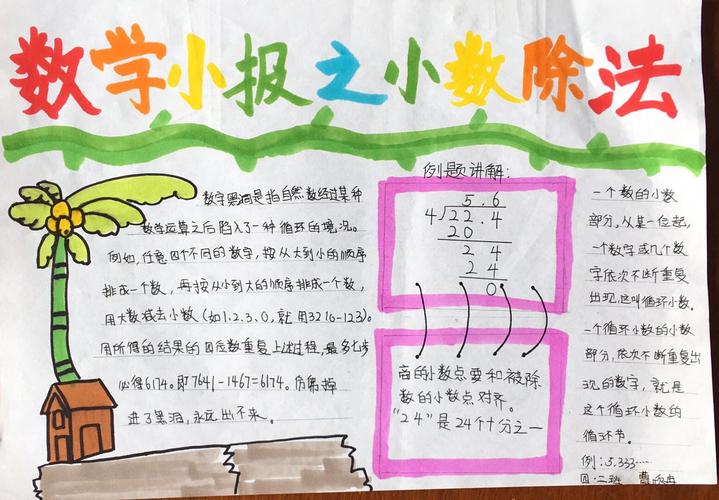 数学小报之小数除法
数字黑洞是指自然数经过某种
数学运算之后陷入了一种循环的境况。
例如,任意四个不同的数字,按从大到小的顺序
排成一个数,再按从小到大的顺序排成一个数,
用大数减去小数(如1.2.3.0,就用3210-123)。
用所得的结果的四位数重复上述过程,最多七步
必得6174。即7641-1467=6174。仿佛掉
进了黑洞,永远出不来。
例题讲解:
5.6
4√22.4
20
2 4
2 4
0
商的小数点要和被除
数的小数点对齐。
"24"是24个十分之一
一个数的小数
部分,从某一位起,
一个数字或几个数
字依次不断重复
出现,这叫循环小数。
一个循环小数的小数
部分,依次不断重复出
现的数字,就是
这个循环小数的
循环节。
例:5.333……
四·二班